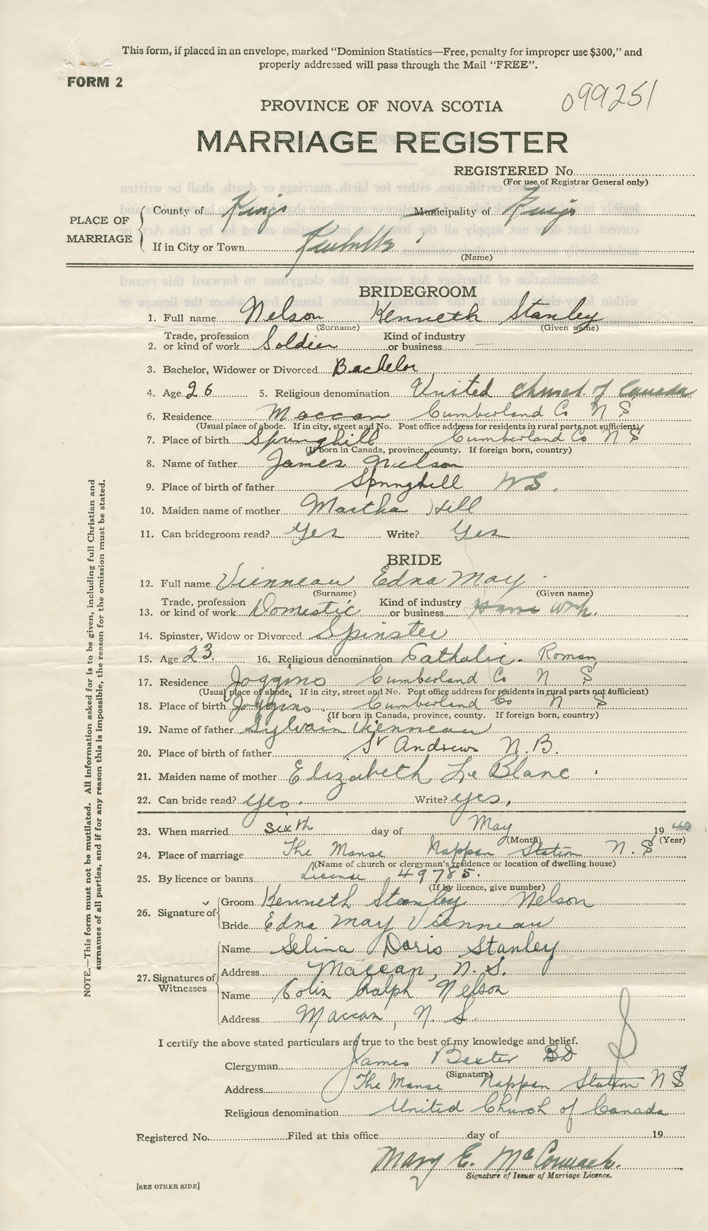 This form, if placed in an envelope, marked "Dominion Statistics—Free, penalty for improper use $300," and
properly addressed will pass through the Mail "FREE".
FORM 2
099251
PROVINCE OF NOVA SCOTIA
MARRIAGE REGISTER
REGISTERED No.
(For use of Registrar General only)
PLACE OF MARRIAGE
County of Kings Municipality of Kings
If in City or Town
(Name)
BRIDEGROOM
1. Full name Nelson Kenneth Stanley
(Surname) (Given name)
2. Trade, profession or kind of work Soldier Kind of industry or business
3. Bachelor, Widower or Divorced Bachelor
4. Age 26 5. Religious denomination United Church of Canada
6. Residence Maccan Cumberland Co N S
(Usual place of abode. If in city, street and No. Post office address for residents in rural parts not sufficient)
7. Place of birth Springhill Cumberland Co N S
(If born in Canada, province, county. If foreign born, country)
8. Name of father James Nelson
9. Place of birth of father Springhill N.S.
10. Maiden name of mother Martha Hill
11. Can bridegroom read? Yes Write? Yes
BRIDE
12. Full name Vienneau Edna May
(Surname) (Given name)
13. Trade, profession or kind of work Domestic Kind of industry or business Home Work.
14. Spinster, Widow or Divorced Spinster
15. Age 23 16. Religious denomination Catholic. Roman
17. Residence Joggins Cumberland Co N S
(Usual place of abode. If in city, street and No. Post office address for residents in rural parts not sufficient)
18. Place of birth Joggins Cumberland Co N S
(If born in Canada, province, county. If foreign born, country)
19. Name of father Sylvain Vienneau
20. Place of birth of father St Andrews N.B.
21. Maiden name of mother Elizabeth Le Blanc
22. Can bride read? yes. Write? yes.
23. When married sixth day of May 1940
(Month) (Year)
24. Place of marriage The Manse Nappan Station N.S
(Name of church or clergyman's residence or location of dwelling house)
25. By licence or banns License 49785.
(If by licence, give number)
26. Signature of
Groom Kenneth Stanley Nelson
Bride Edna May Vienneau
27. Signatures of Witnesses
Name Selina Doris Stanley
Address Maccan, N.S.
Name Colin Ralph Nelson
Address Maccan, N S
I certify the above stated particulars are true to the best of my knowledge and belief.
Clergyman James Baxter BD
(Signature)
Address The Manse Nappan Station N S
Religious denomination United Church of Canada
Registered No. Filed at this office day of 19
Mary E. McCormack.
Signature of Issuer of Marriage Licence.
[SEE OTHER SIDE]
NOTE.—This form must not be mutilated. All information asked for is to be given, including full Christian and
surnames of all parties, and if for any reason this is impossible, the reason for the omission must be stated.